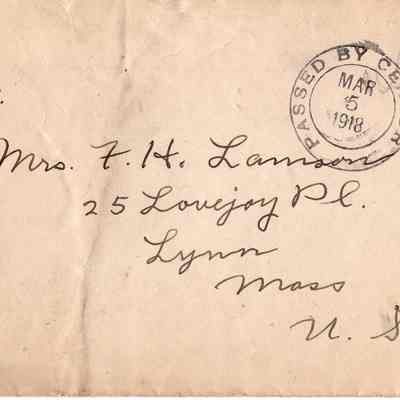 PASSED BY CENSOR
MAR
5
1918
Mrs. F. H. Lamson
25 Lovejoy Pl.
Lynn
Mass
U. S